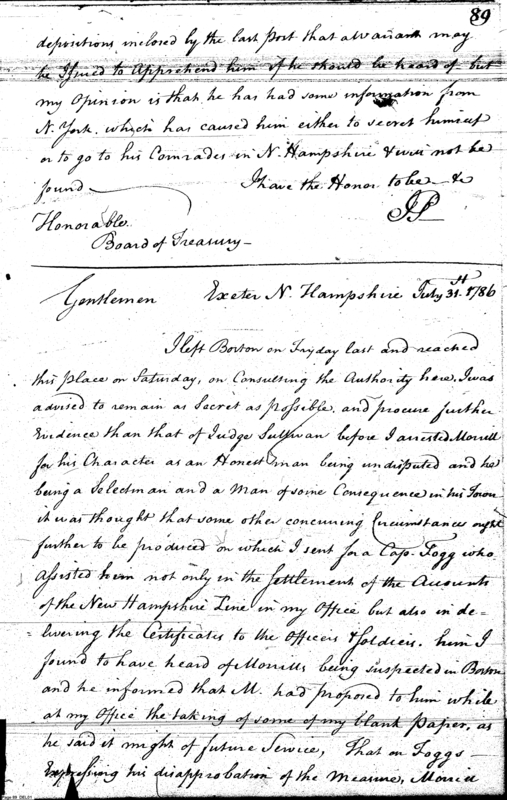 89
depositions inclosed by the last post that a warrant may
be Issued to Apprehend him if he should be heard of but
my Opinion is that he has had some information from
N. York. which has caused him either to secret himself
or to go to his Comrades in N. Hampshire & will not be
found — I have the Honor to be — &c
JP
Honorable
Board of Treasury —
Gentlemen Exeter N. Hampshire July 31st 1786
I left Boston on Fryday last and reached
this place on Saturday, on Consulting the Authority here, I was
advised to remain as Secret as possible, and procure further
Evidence than that of Judge Sullivan before I arrested Morrell
for his Character as an Honest man being undisputed and he
being a Selectman and a Man of some Consequence in his Town
it was thought that some other concurring Circumstances ought
further to be produced on which I sent for a Cap. Fogg who
assisted him not only in the Settlement of the Accounts
of the New Hampshire Line in my Office but also in de-
-livering the Certificates to the Officers & Soldiers. him I
found to have heard of Morrills being suspected in Boston
and he informed that M. had proposed to him while
at my Office the taking of some of my blank Paper, as
he said it might of future Service, That on Foggs
Expressing his disapprobation of the Measure, Morrill